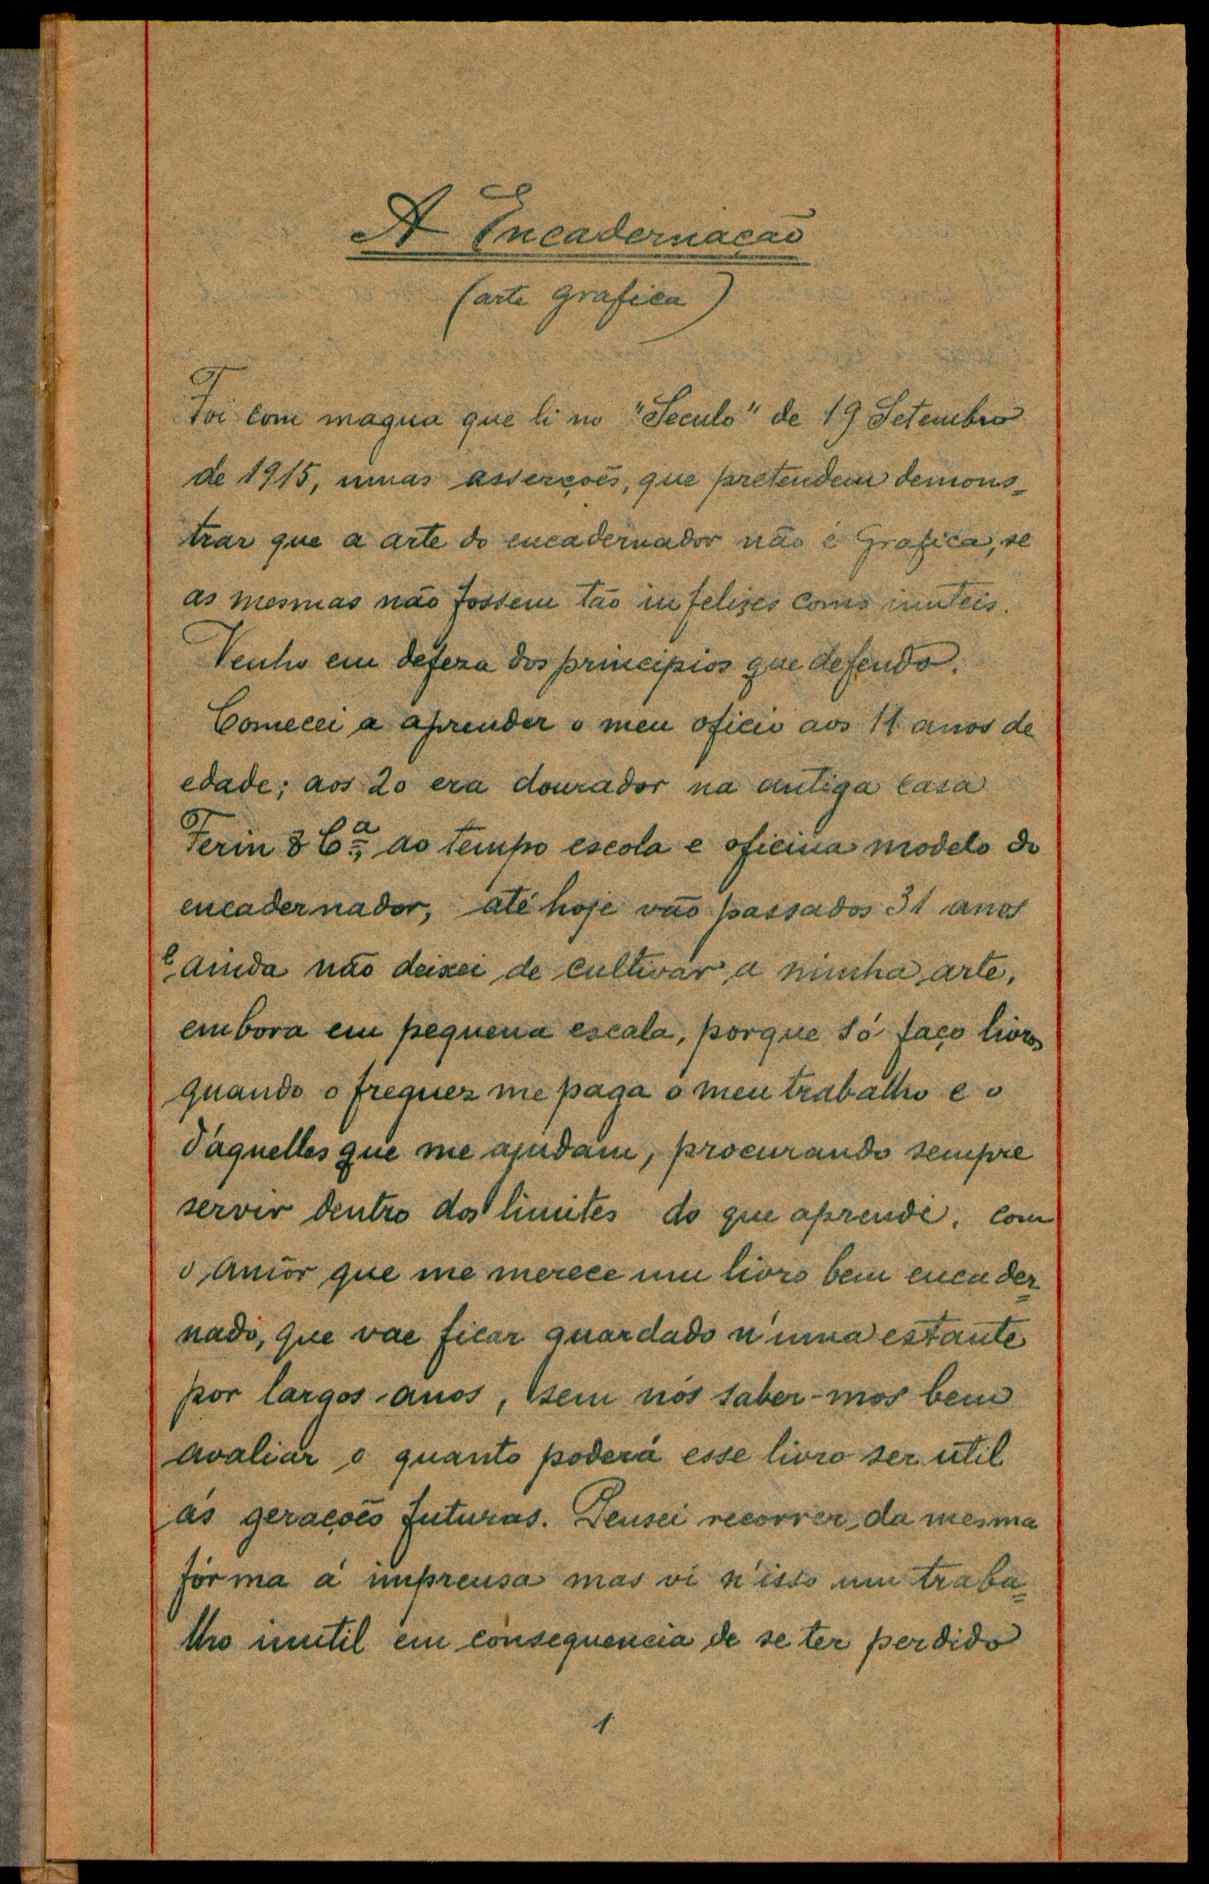 A Encadernação
(arte grafica)
Foi com magua que li no "Seculo" de 19 Setembro
de 1915, umas asserções, que pretendem demons=
trar que a arte do encadernador não é grafica, se
as mesmas não fossem tão infelizes como inuteis.
Venho em defeza dos principios que defendo.
Comecei a aprender o meu oficio aos 11 anos de
edade; aos 20 era dourador na antiga casa
Ferin & Cª, ao tempo escola e oficina modelo do
encadernador, até hoje vão passados 31 anos
e ainda não deixei de cultivar a minha arte,
embora em pequena escala, porque só faço livros
quando o freguez me paga o meu trabalho e o
d'aquelles que me ajudam, procurando sempre
servir dentro dos limites do que aprendi, com
o amôr que me merece um livro bem encader=
nado, que vae ficar guardado n'uma estante
por largos anos, sem nós saber-mos bem
avaliar o quanto poderá esse livro ser util
ás gerações futuras. Pensei recorrer da mesma
fórma á imprensa mas vi n'isso um traba=
lho inutil em consequencia de se ter perdido
1